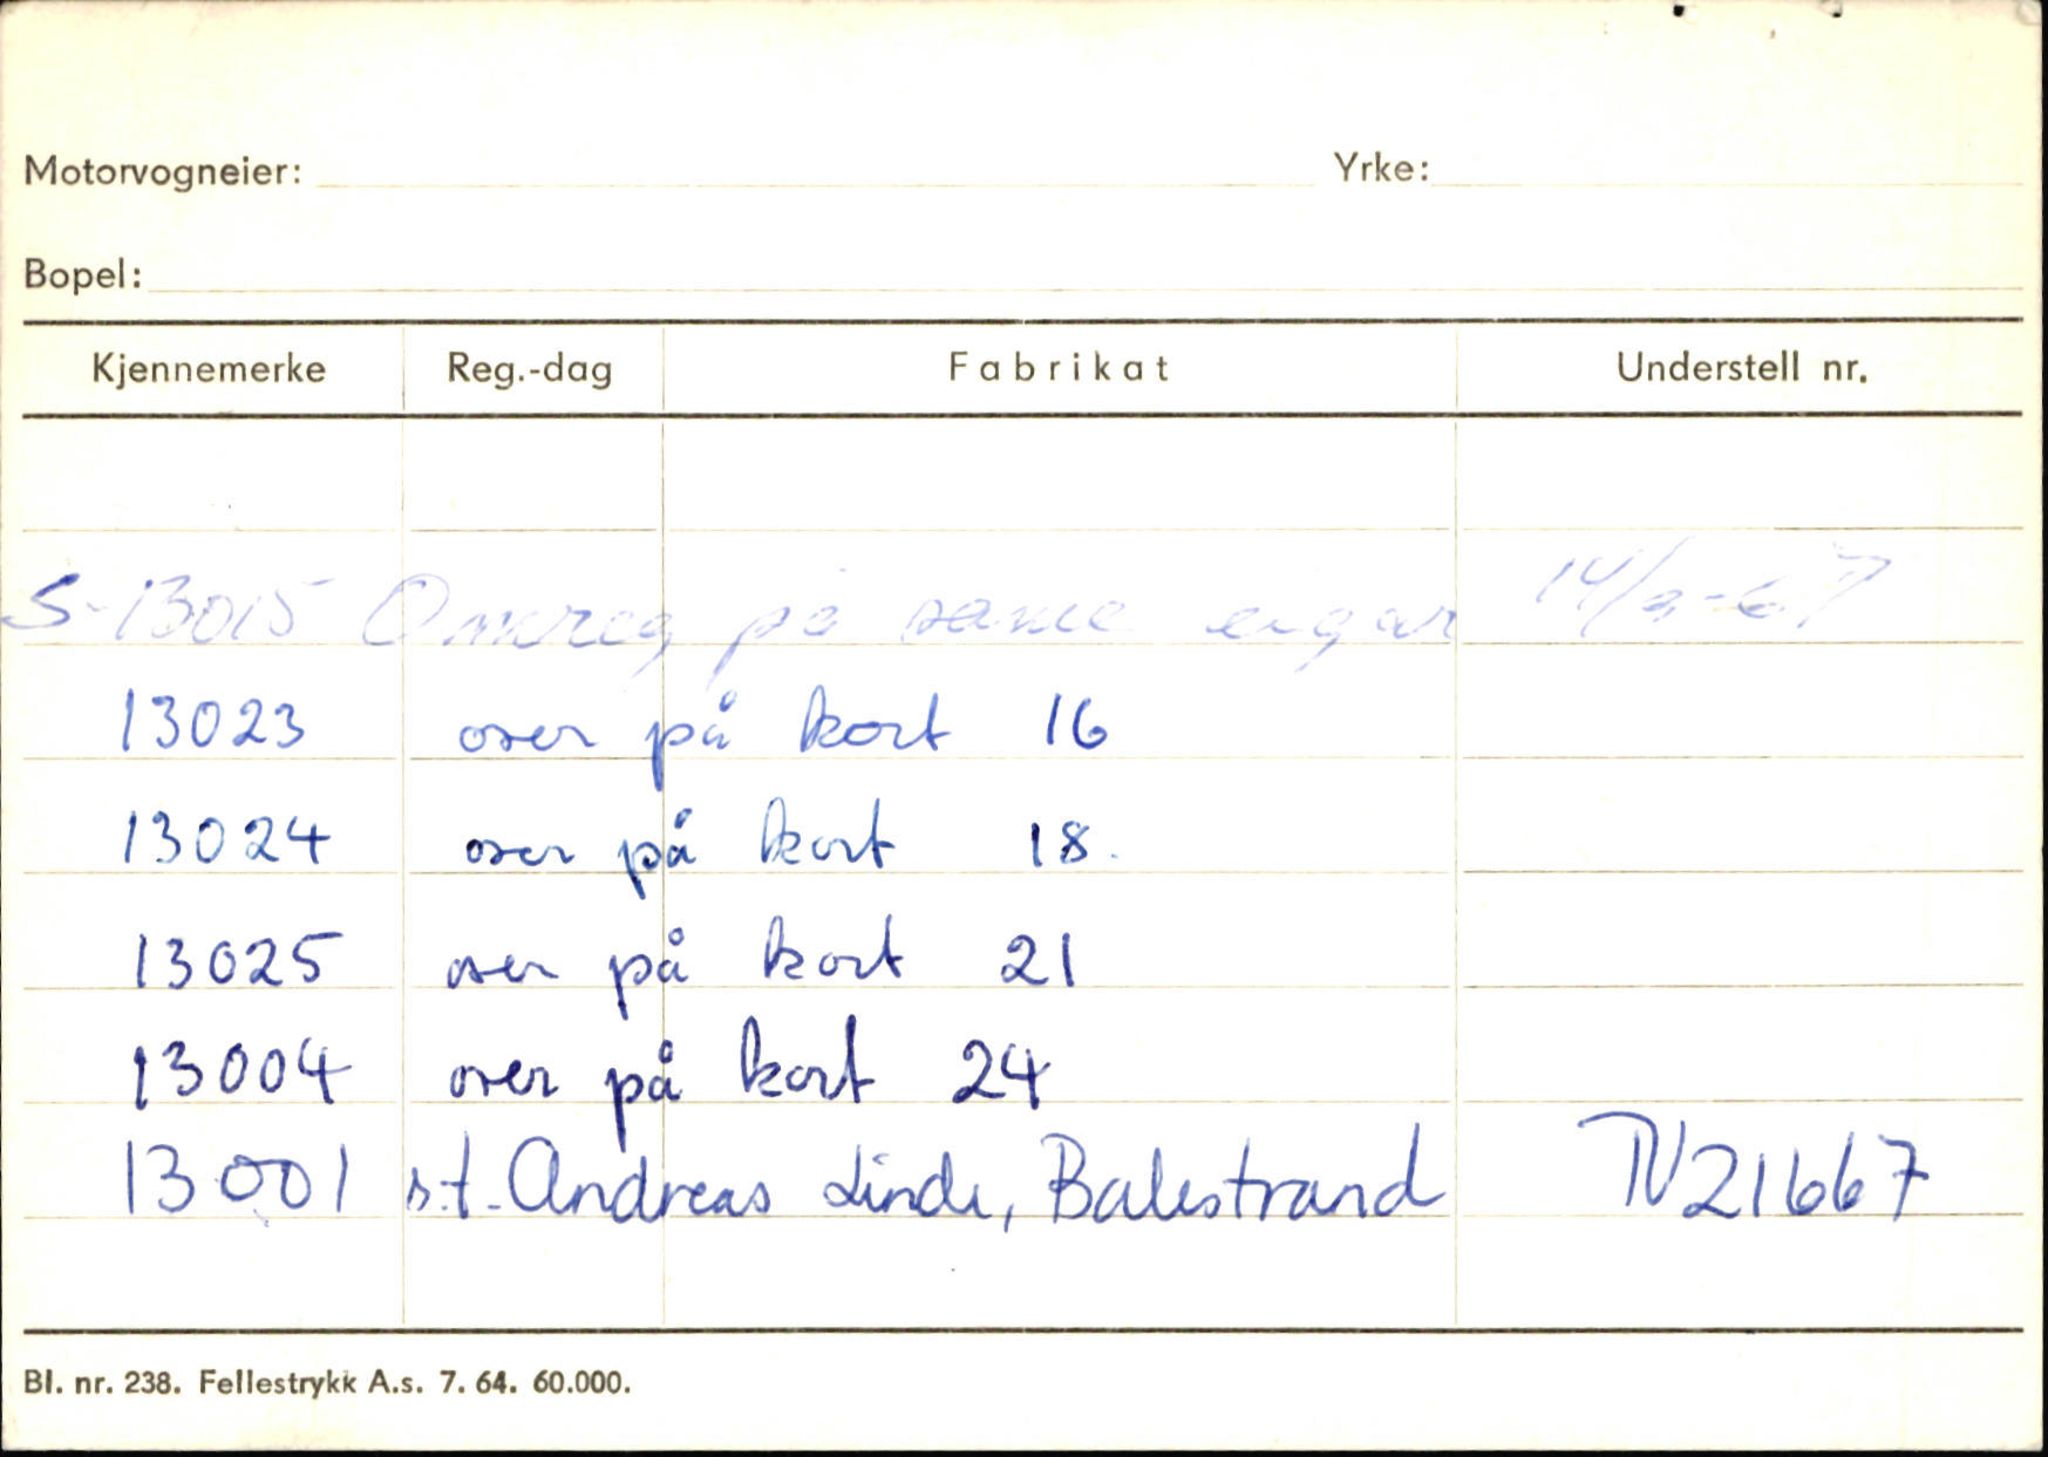 Motorvogneier: Yrke:
Bopel:
Kjennemerke Reg.-dag Fabrikat Understell nr.
S-13015 Omreg på same eigar 14/2-67
13023 over på kort 16
13024 over på kort 18.
13025 over på kort 21
13004 over på kort 24
13001 s.t. Andreas Linde, Balestrand TV21667
Bl. nr. 238. Fellestrykk A.s. 7. 64. 60.000.